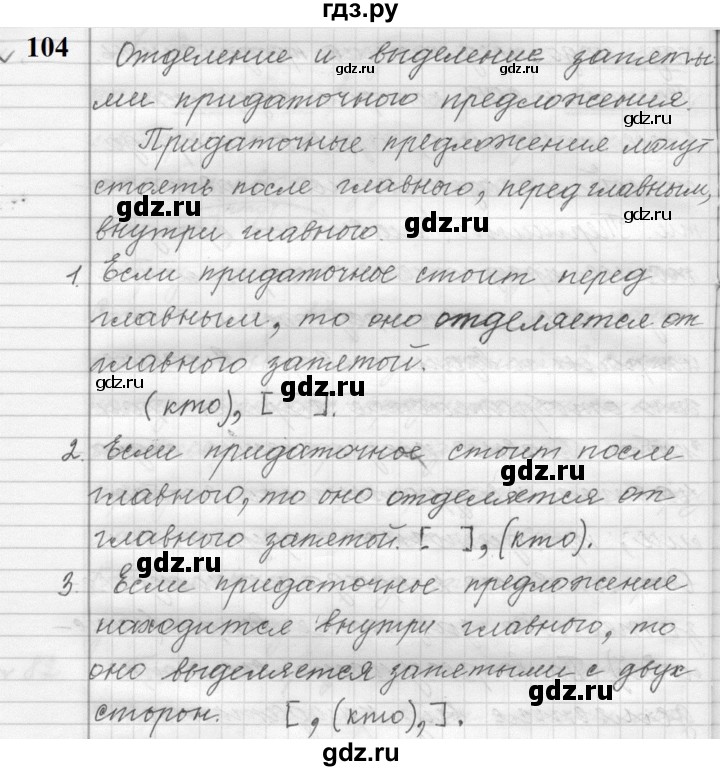 гдз.ру
104
Отделение и выделение запяты
ми придаточного предложения.
Придаточные предложения могут
стоять после главного, перед главным,
внутри главного.
1. Если придаточное стоит перед
главным, то оно отделяется от
главного запятой.
(кто), [ ].
2. Если придаточное стоит после
главного, то оно отделяется от
главного запятой. [ ], (кто).
3. Если придаточное предложение
находится внутри главного, то
оно выделяется запятыми с двух
сторон. [ , (кто), ].
gdz.ru
gdz.ru
gdz.ru
gdz.ru
gdz.ru
gdz.ru
gdz.ru
gdz.ru
gdz.ru
gdz.ru
gdz.ru
gdz.ru
gdz.ru